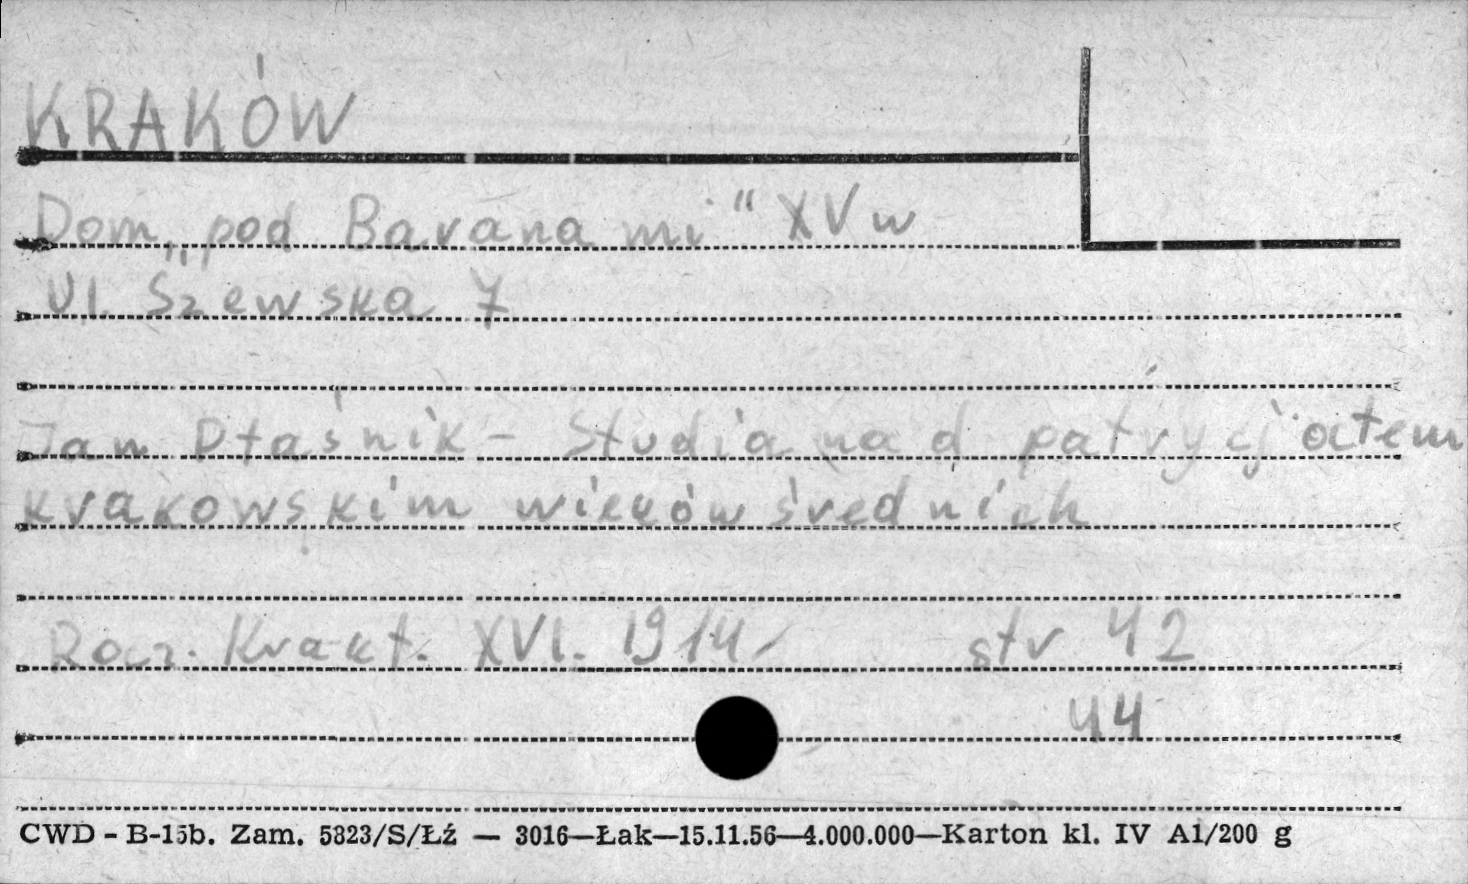 KRAKÓW
Dom „pod Baranami" XV w
Ul. Szewska 7
Jan Ptaśnik - Studia nad patrycjatem
krakowskim wieków średnich
Rocz. Krak. XVI. 1914 str 42
44
CWD - B-15b. Zam. 5823/S/Łź — 3016—Łak—15.11.56—4.000.000—Karton kl. IV A1/200 g